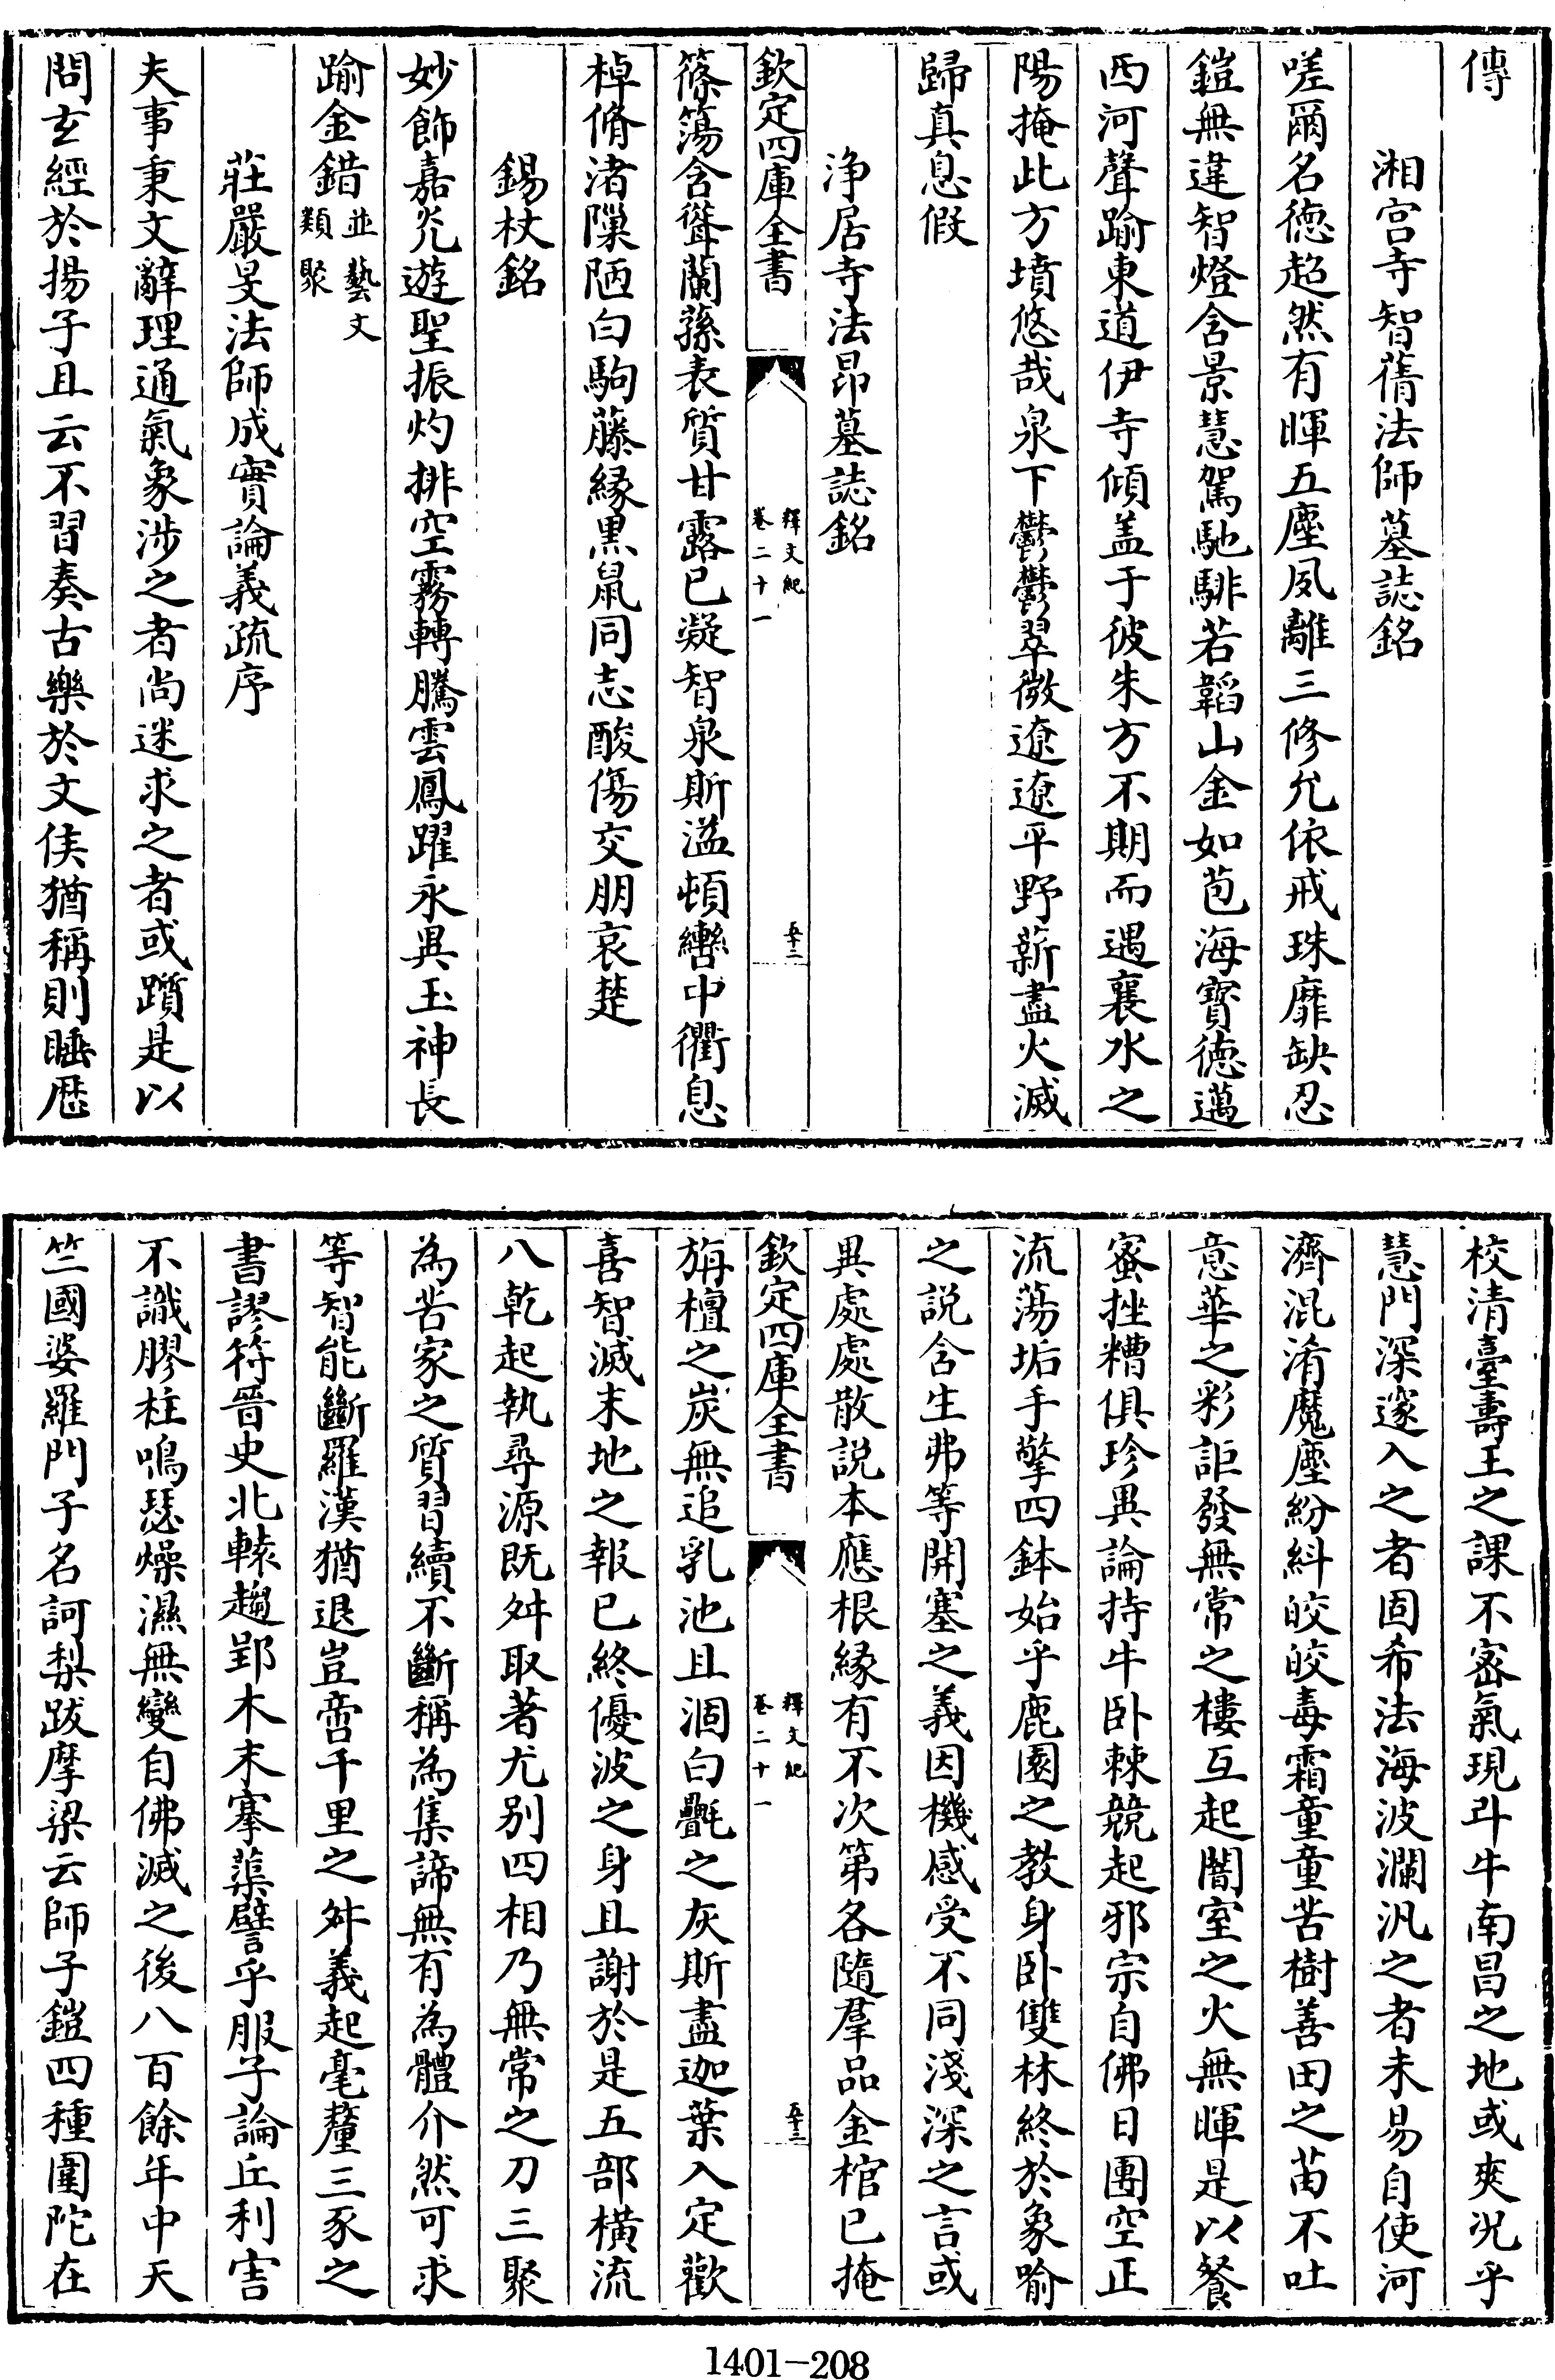 傳
湘宫寺智蒨法師墓誌銘
嗟爾名徳超然有暉五塵夙離三修允依戒珠靡缺忍
鎧無違智燈含景慧駕馳騑若韜山金如苞海寳徳邁
西河聲踰東道伊寺傾盖于彼朱方不期而遇襄水之
陽掩此方墳悠哉泉下鬱鬱翠微遼遼平野薪盡火滅
歸真息假
淨居寺法昂墓誌銘
欽定四庫全書
釋文紀
卷二十一
五十二
篠簜含聳蘭蓀表質甘露已凝智泉斯溢頓轡中衢息
棹脩渚隟陋白駒藤縁黒鼠同志酸傷交朋哀楚
錫杖銘
妙飾嘉光遊聖振灼排空霧轉騰雲鳳躍永異玉神長
踰金錯並藝文
類聚
莊嚴旻法師成實論義疏序
夫事秉文辭理通氣象渉之者尚迷求之者或躓是以
問𤣥經於揚子且云不習奏古樂於文侯猶稱則睡厯
校清臺夀王之課不宻氣現斗牛南昌之地或爽况乎
慧門深邃入之者固希法海波瀾汎之者未易自使河
濟混淆魔塵紛糾皎皎毒霜童童苦樹善田之苗不吐
意華之彩詎發無常之樓互起闇室之火無暉是以餐
蜜挫糟俱珍異論持牛卧棘競起邪宗自佛日團空正
流蕩垢手擎四鉢始乎鹿園之教身卧雙林終於象喻
之説含生弗等開塞之義因機感受不同淺深之言或
異處處散説本應根縁有不次第各隨羣品金棺已掩
欽定四庫全書
釋文紀
卷二十一
五十三
旃檀之炭無追乳池且涸白㲲之灰斯盡迦葉入定歡
喜智滅末地之報已終優波之身且謝於是五部横流
八乾起執尋源既舛取著尤别四相乃無常之刀三聚
為苦家之質習續不斷稱為集諦無有為體介然可求
等智能斷羅漢猶退豈啻千里之舛義起毫釐三豕之
書謬符晉史北轅趨郢木末搴蕖譬乎服子論丘利害
不識膠柱鳴瑟燥濕無變自佛滅之後八百餘年中天
竺國婆羅門子名訶梨跋摩梁云師子鎧四種圍陀在
1401-208